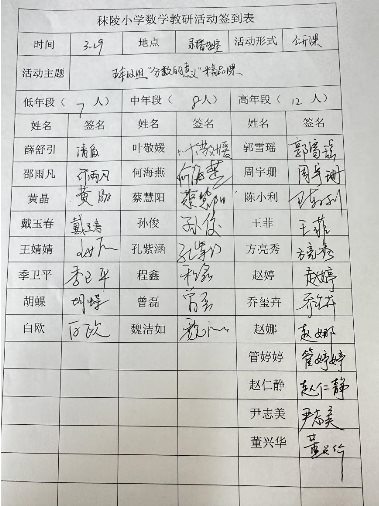 秣陵小学数学教研活动签到表
时间 3.29 地点 录播教室 活动形式 公开课
活动主题 "分数的意义"
低年段（7人） 中年段（8人） 高年段（12人）
姓名 签名 姓名 签名 姓名 签名
薛舒引 请假 叶敬媛 叶敬媛 郭雪瑶 郭雪瑶
邵雨凡 邵雨凡 何海燕 何海燕 周宇珊 周宇珊
黄晶 黄晶 蔡慧阳 蔡慧阳 陈小利 陈小利
戴玉春 戴玉春 孙俊 孙俊 王菲 王菲
王婧婧 孔紫涵 孔紫涵 方亮秀 方亮秀
季卫平 季卫平 程鑫 程鑫 赵婷 赵婷
胡蝶 胡蝶 曾磊 曾磊 乔玺卉 乔玺卉
白欧 白欧 魏洁如 赵娜 赵娜
管婷婷 管婷婷
赵仁静 赵仁静
尹志美 尹志美
董兴华 董兴华